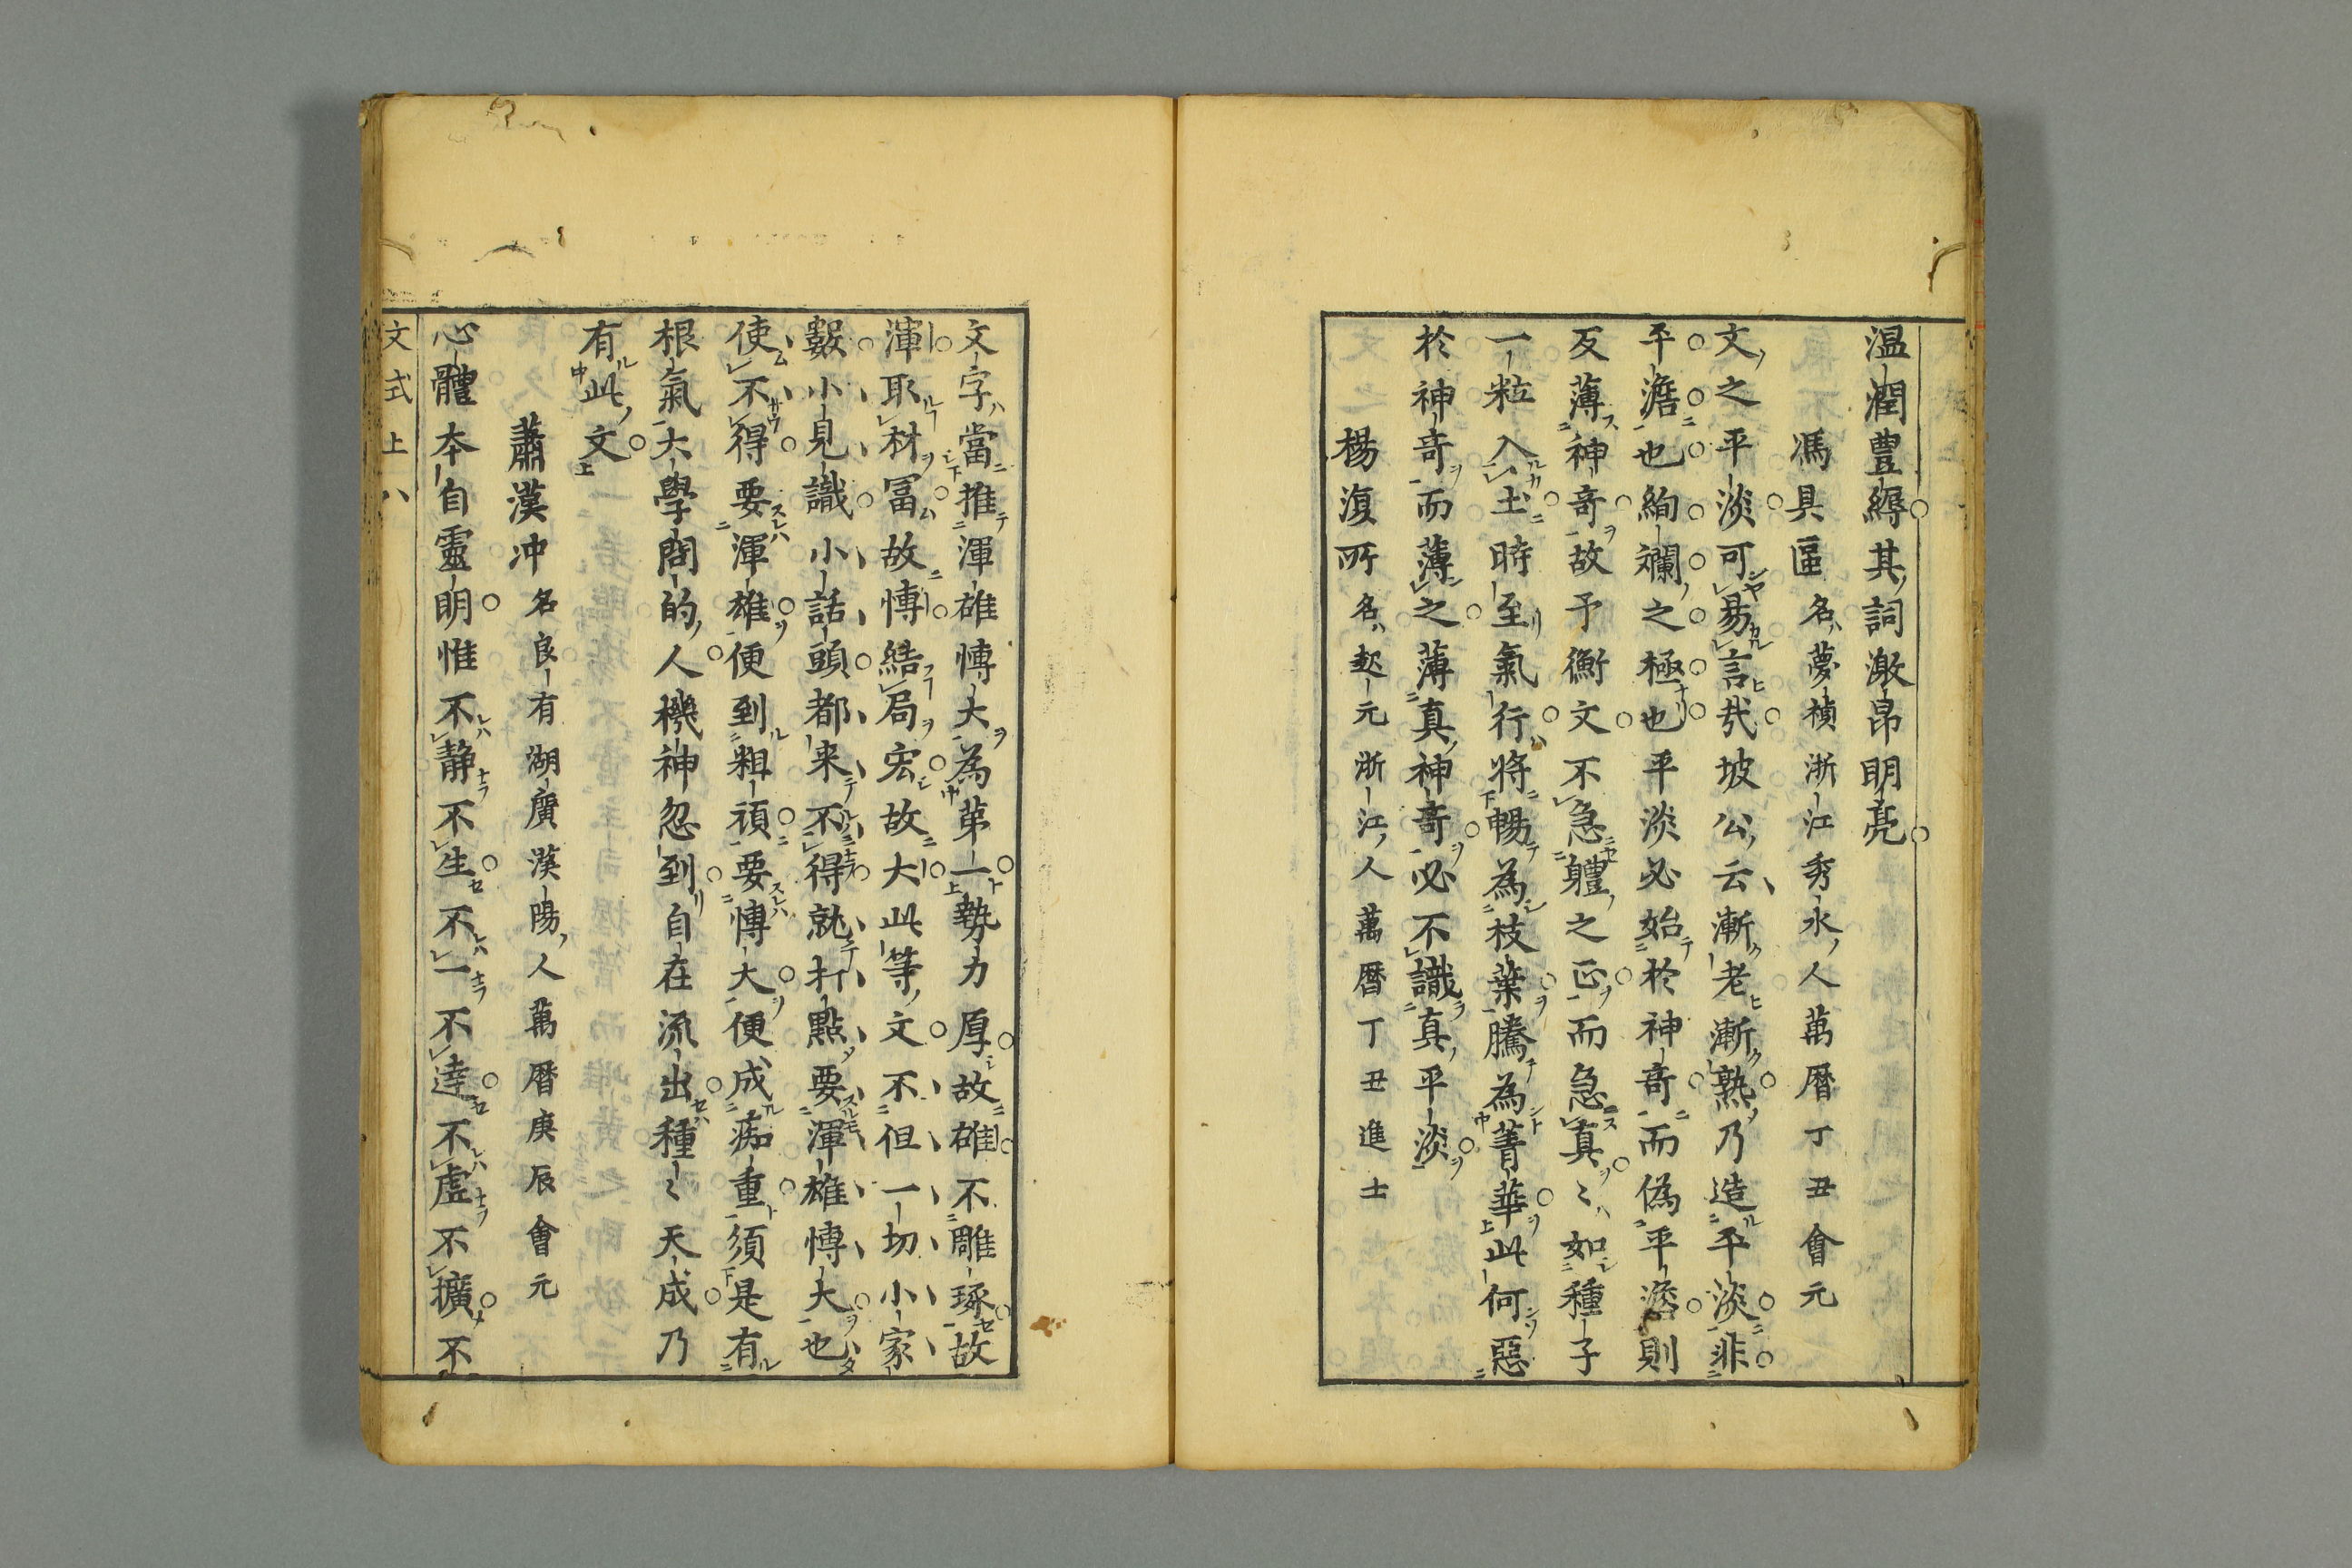 温潤豊縟其詞激昂明亮
馮具區名夢禎浙江秀水人萬曆丁丑會元
文之平淡可易言哉坡公云漸老漸熟乃造平淡非
平澹也絢斕之極也平淡必始於神奇而偽平澹則
反薄神奇故予衡文不急軆之正而急真〻如種子
一粒入土時至氣行將暢為枝葉騰為菁華此何惡
於神奇而薄之薄真神奇必不識真平淡
楊復所名起元浙江人萬曆丁丑進士
文字當推渾雄博大為第一勢力厚故雄不雕琢故
渾取材冨故博結局宏故大此等文不但一切小家
數小見識小話頭都来不得就打點要渾雄博大也
使不得要渾雄便到粗頑要博大便成痴重須是有
根氣大學問的人機神忽到自在流出種〻天成乃
有此文
蕭漢冲名良有湖廣漢陽人萬曆庚辰會元
心體本自靈明惟不静不生不一不逹不虚不擴不
文式 上 八